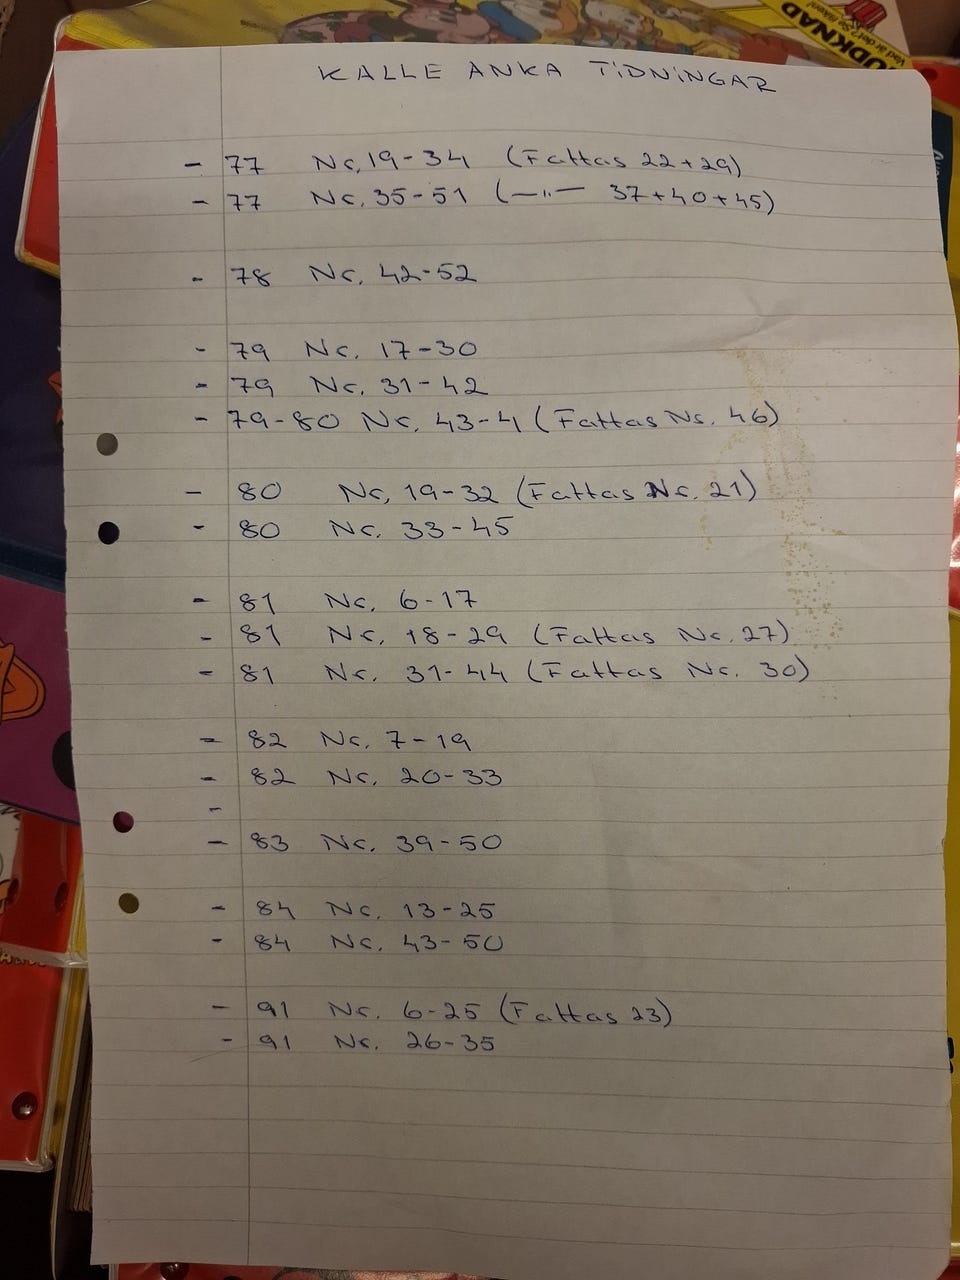 Vad är det? Se fliken!
UDKNAD
KALLE ANKA TiDNiNGAR
- 77 Nr. 19-34 (Fattas 22+29)
- 77 Nr. 35-51 (—"— 37+40+45)
- 78 Nr. 42-52
- 79 Nr. 17-30
- 79 Nr. 31-42
- 79-80 Nr. 43-4 (Fattas Nr. 46)
- 80 Nr. 19-32 (Fattas Nr. 21)
- 80 Nr. 33-45
- 81 Nr. 6-17
- 81 Nr. 18-29 (Fattas Nr. 27)
- 81 Nr. 31-44 (Fattas Nr. 30)
- 82 Nr. 7-19
- 82 Nr. 20-33
-
- 83 Nr. 39-50
- 84 Nr. 13-25
- 84 Nr. 43-50
- 91 Nr. 6-25 (Fattas 23)
- 91 Nr. 26-35